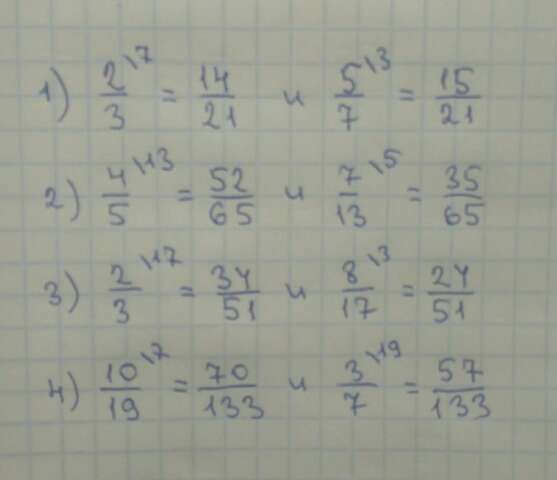 1) 2/3 \7 = 14/21 и 5/7 \3 = 15/21
2) 4/5 \13 = 52/65 и 7/13 \5 = 35/65
3) 2/3 \17 = 34/51 и 8/17 \3 = 24/51
4) 10/19 \7 = 70/133 и 3/7 \19 = 57/133